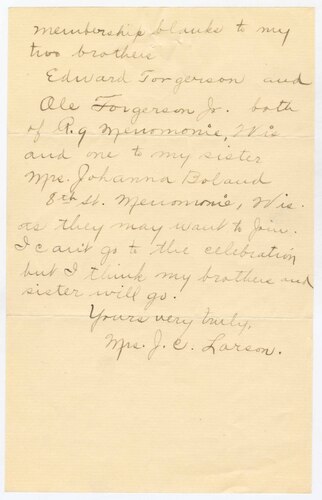 membership blanks to my
two brothers
Edward Torgerson and
Ole Torgerson Jr. both
of R.9 Menomonie, Wis
and one to my sister
Mrs. Johanna Boland
8th St. Menomonie, Wis.
as they may want to join.
I can't go to the celebration
but I think my brothers and
sister will go.
Yours very truly,
Mrs. J. C. Larson.